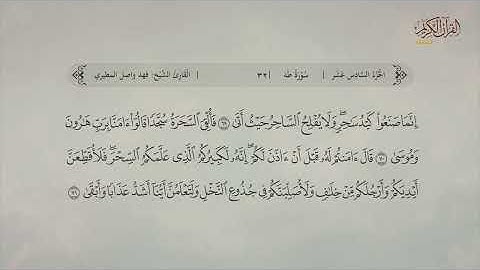 القرآن الكريم
الجزء السادس عشر | سورة طه | ٣٢ | القارئ الشيخ: فهد واصل المطيري
إِنَّمَا صَنَعُوا۟ كَيْدُ سَٰحِرٍۢ ۖ وَلَا يُفْلِحُ ٱلسَّاحِرُ حَيْثُ أَتَىٰ ۝٦٩ فَأُلْقِىَ ٱلسَّحَرَةُ سُجَّدًۭا قَالُوٓا۟ ءَامَنَّا بِرَبِّ هَٰرُونَ
وَمُوسَىٰ ۝٧٠ قَالَ ءَامَنتُمْ لَهُۥ قَبْلَ أَنْ ءَاذَنَ لَكُمْ ۖ إِنَّهُۥ لَكَبِيرُكُمُ ٱلَّذِى عَلَّمَكُمُ ٱلسِّحْرَ ۖ فَلَأُقَطِّعَنَّ
أَيْدِيَكُمْ وَأَرْجُلَكُم مِّنْ خِلَٰفٍۢ وَلَأُصَلِّبَنَّكُمْ فِى جُذُوعِ ٱلنَّخْلِ وَلَتَعْلَمُنَّ أَيُّنَآ أَشَدُّ عَذَابًۭا وَأَبْقَىٰ ۝٧١